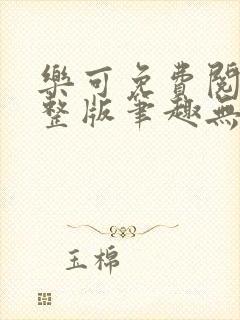 樂可免費閱
整版筆趣無
玉棉